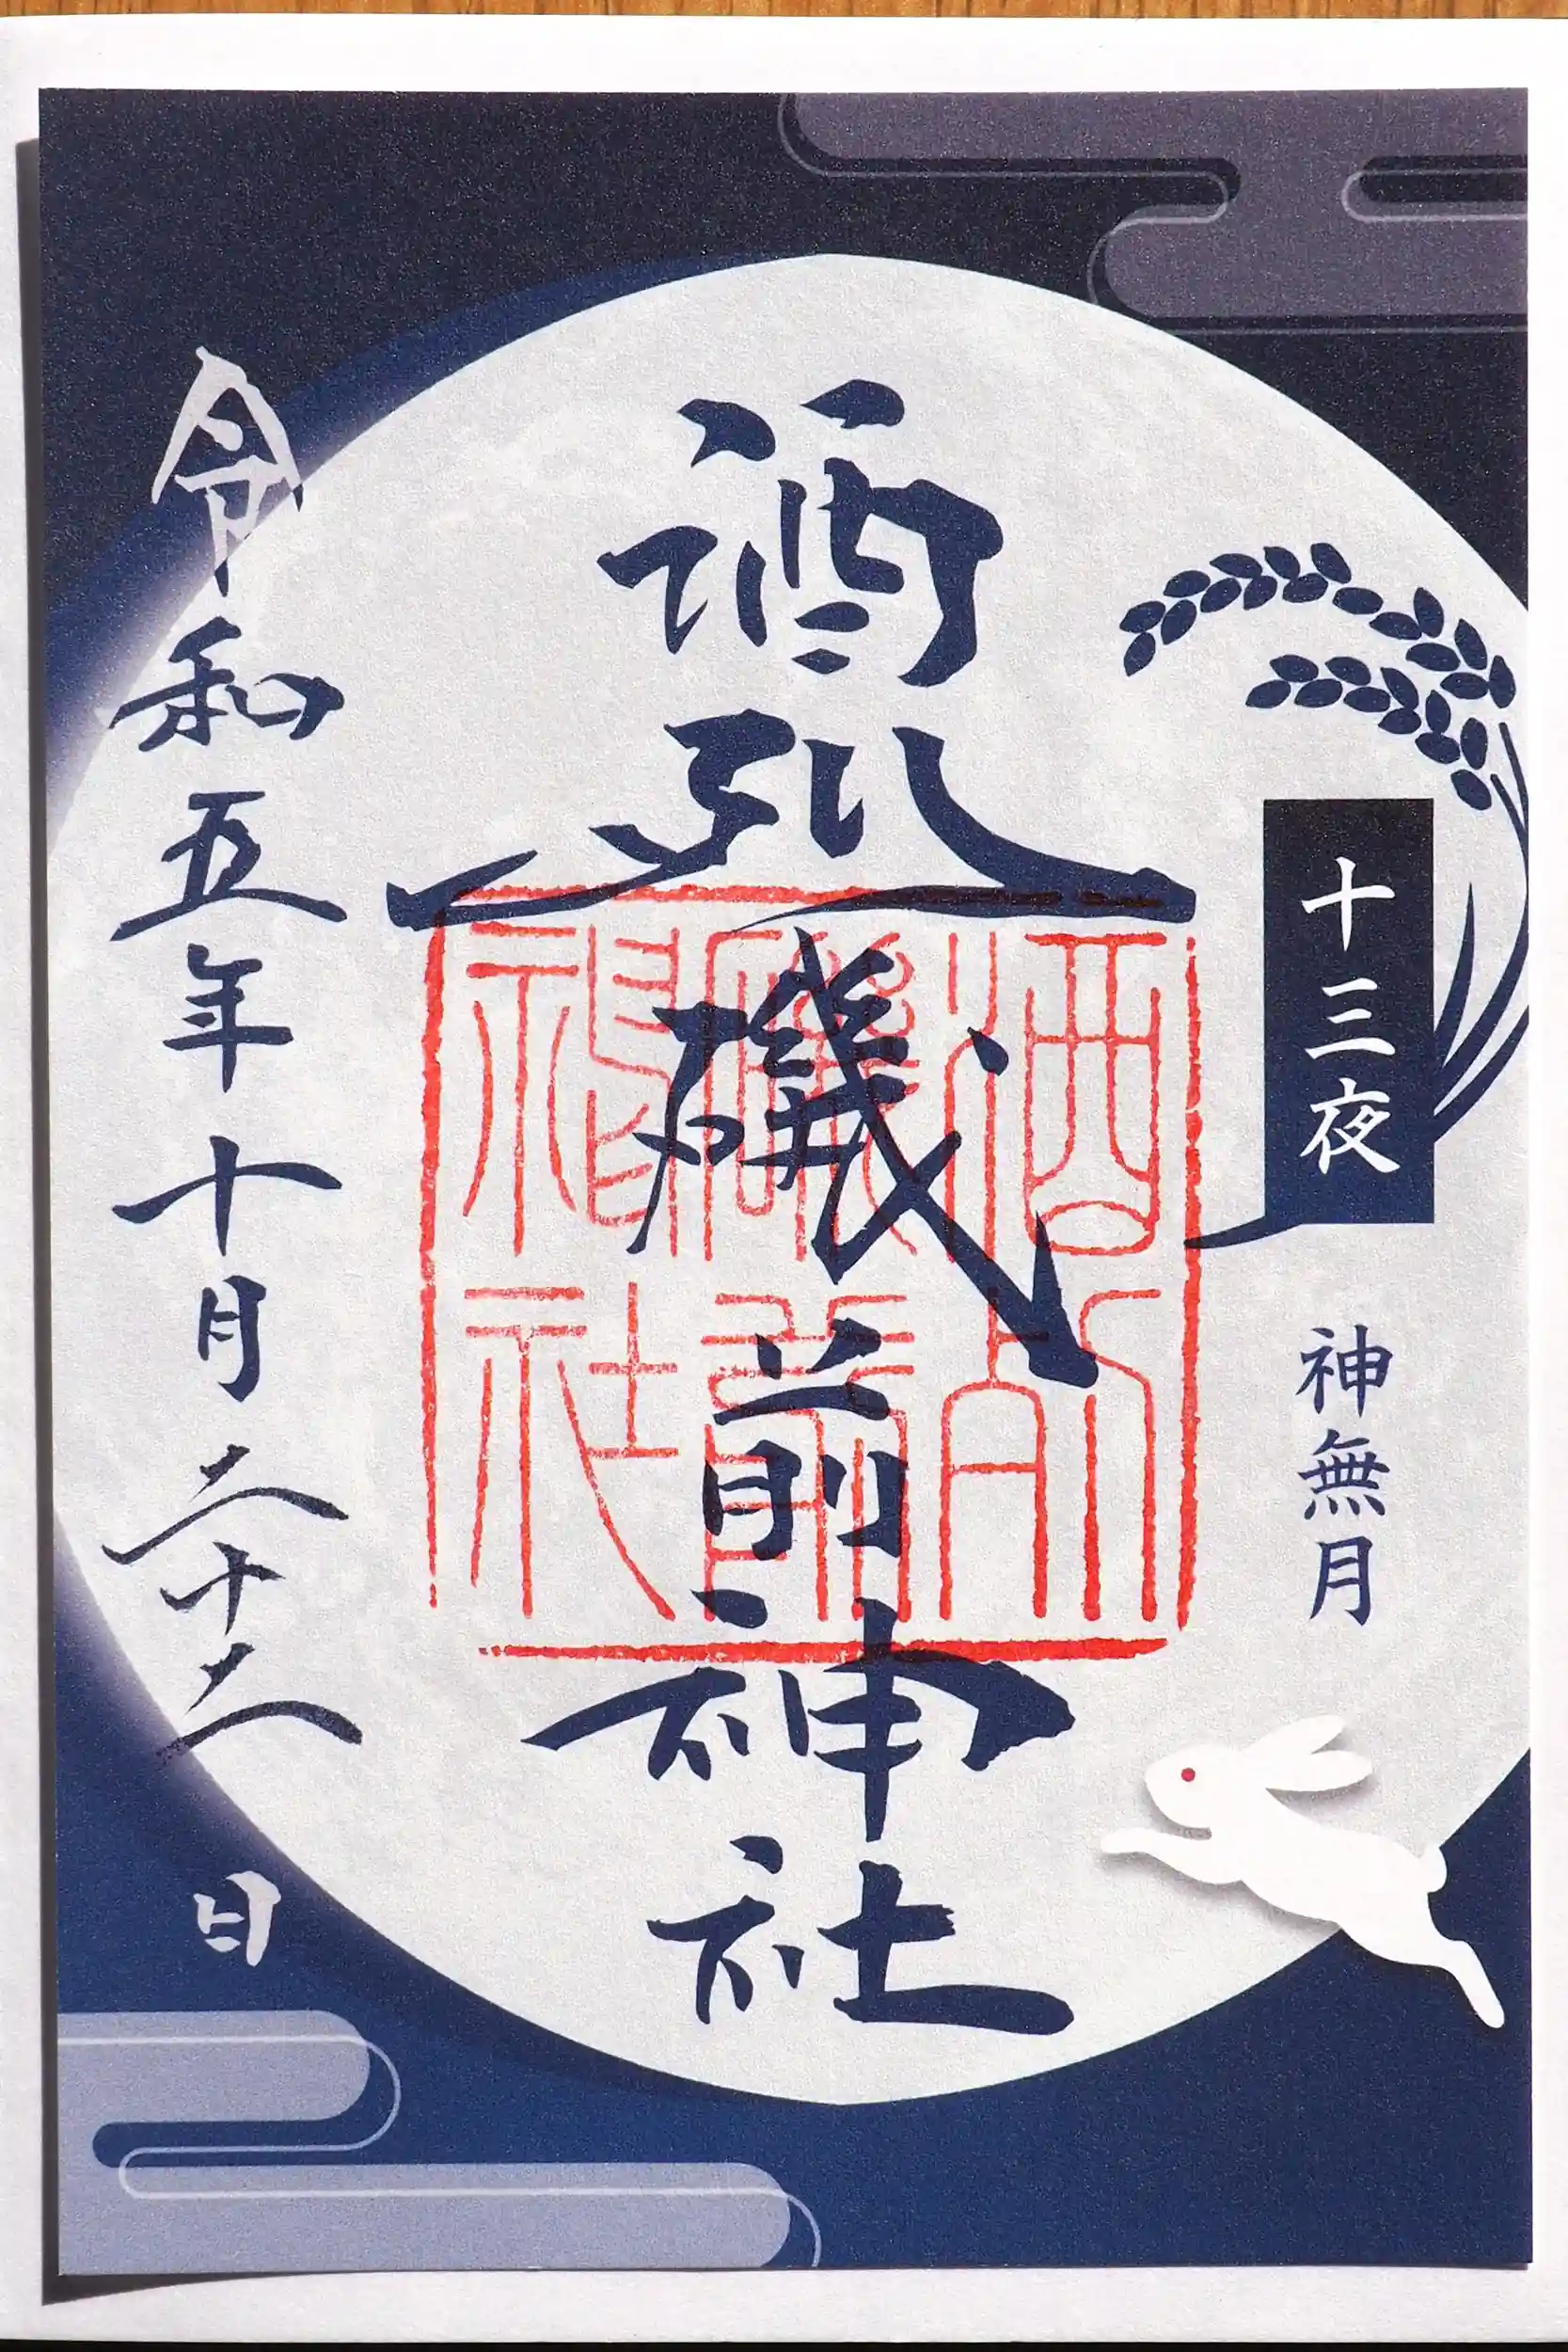 十三夜
神無月
酒列磯前神社
酒列
磯前
神社
令和五年十月二十二日